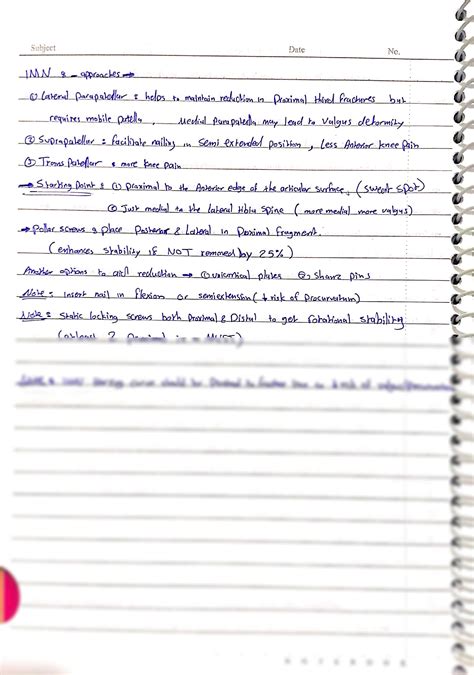 Subject Date No.
IMN 8 - approaches →
① Lateral Parapatellar 8 helps to maintain reduction in Proximal third fractures but
requires mobile patella, Medial parapatella may lead to valgus deformity
② Suprapatellar 8 facilitate nailing in semi extended position, Less Anterior knee pain
③ Trans Patellar 8 more knee pain
→ Starting Point 8 ① proximal to the Anterior edge of the articular surface. (sweat spot)
② Just medial to the lateral tibial spine (more medial more valgus)
→ Pollar screws 8 place Posterior & Lateral in Proximal fragment.
(enhances stability if NOT reamed by 25%)
Another options to aid reduction → ① unicortical plates ② shanz pins
Note 8 insert nail in flexion or semiextension (↓ risk of procurvatum)
Note 8 static locking screws both proximal & Distal to get rotational stability
(at least 2 Proximal MUST)